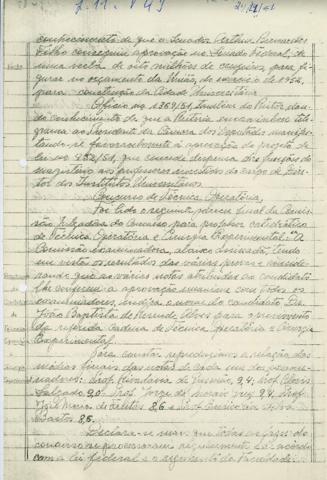 conhecimento de que o Senador Artur Bernardes
Filho conseguiu aprovação no Senado Federal, de
uma verba de oito milhões de cruzeiros para fi-
gurar no orçamento da União, no exercício de 1952,
para construção da Cidade Universitária
Ofício nº 1369/51, também do Reitor, dan-
do conhecimento de que a Reitoria encaminhou tele-
grama ao Presidente da Câmara dos Deputados manifes-
tando-se favoravelmente à aprovação do projeto de
lei nº /51, que concede dispensa das funções do
magistério aos professores investidos do cargo de Dire-
tor dos Institutos Universitários
Concurso de Técnica Operatória,
Foi lido o seguinte parecer final da Comis-
são Julgadora do Concurso para professor catedrático
de Técnica Operatória e Cirurgia Experimental: A
Comissão Examinadora, abaixo assinada, tendo
em vista os resultados das várias provas e conside-
rando que as várias notas atribuídas ao candidato
lhe conferem a aprovação unânime com todos os
examinadores, indica o nome do candidato Dr.
João Baptista de Rezende Alves para o provimento
da referida Cadeira de Técnica Operatória e Cirurgia
Experimental.
Para constar, reproduzimos a relação das
médias finais das notas de cada um dos exami-
nadores: Prof. de Gusmão, 9,4; Prof. Clovis
Salgado 9,0; Prof. Jorge de Moraes 9,4; Prof.
de Freitas 8,6 e Prof. Americano
Bastos 8,6.
Declara-se mais que todas as fases do
concurso se processaram regularmente de acôrdo
com a lei federal e o regimento da Faculdade.